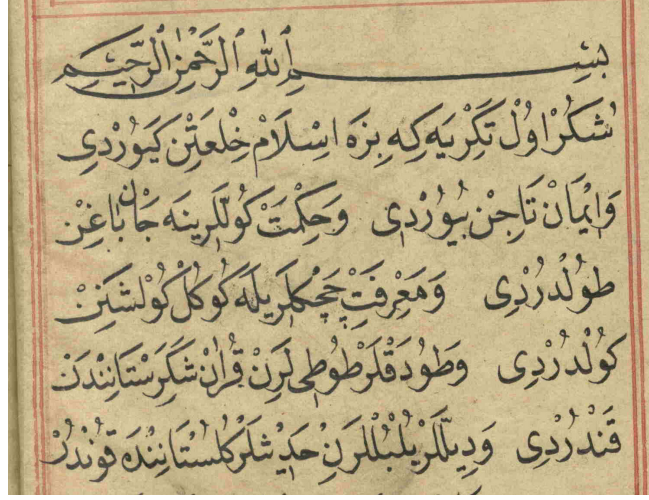 بسم الله الرحمن الرحيم
شُكُرْ اوُلْ تَكْرِيَه كِه بِزَه اِسْلَامْ خِلْعَتِنْ كَيوُرْدِى
وَاِيْمَانْ تَاجِنْ بُيوُرْدِى وَحِكْمَتْ كُوللَرِينَه جَانْ بَاغِنْ
طُولْدُرْدِى وَمَعْرِفَتْ چِچَكْلَرِيلَه كُوكُلْ كُولْشَنِنْ
كُولْدُرْدِى وَطُودَقْلَرْ طُوطِى لَرِنْ قُرْاٰنْ شَكَرِسْتَانِنْدَنْ
قَنْدُرْدِى وَدِيللَرْ بُلْبُللَرِنْ حَدِيثلَرْ كُلِسْتَانِنْدَه قُونْدُرْ